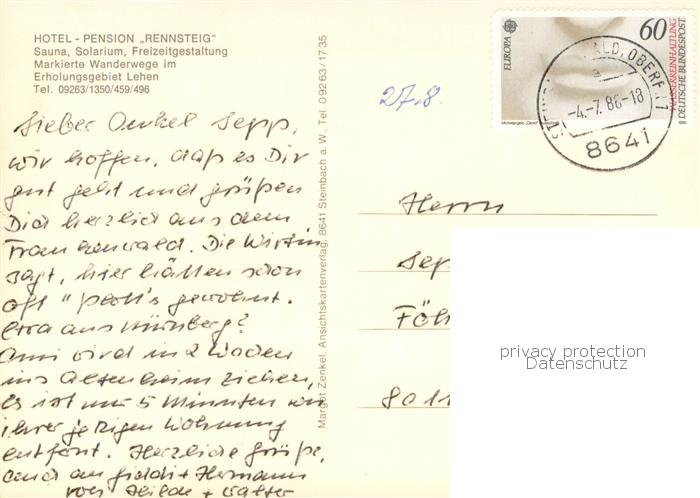 HOTEL - PENSION „RENNSTEIG"
Sauna, Solarium, Freizeitgestaltung
Markierte Wanderwege im
Erholungsgebiet Lehen
Tel. 09263/1350/459/496
Lieber Onkel Sepp,
wir hoffen, daß es Dir
gut geht und grüßen
Dich herzlich aus dem
Frankenwald. Die Wirtin
sagt, hier hätten schon
oft "
gewohnt.
Etwa aus Nürnberg?
wird in 2 Wochen
ins Altenheim ziehen,
Es ist nur 5 Minuten von
ihrer jetzigen Wohnung
entfernt. Herzliche Grüße,
auch an
+ Hermann
von Hilde + Walter
Margot Zenkel, Ansichtskartenverlag, 8641 Steinbach a. W., Tel. 09263/1735
27.8.
EUROPA
60
WASSERREINHALTUNG
DEUTSCHE BUNDESPOST
WALD, OBERFR
-4.-7.86-18
8641
Herrn
Sep
Föh
8011
privacy protection
Datenschutz